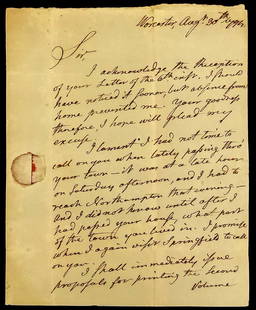 Worcester, Augt. 30th 1792.
Sir,
I acknowledge the Reception
of your Letter of the 6th inst. I should
have noticed it sooner, but absence from
home prevented me. Your goodness
therefore, I hope will plead my
excuse.
I lament I had not time to
call on you when lately passing thro'
your town—it was at a late hour
on Saturday afternoon, and I had to
reach Northampton that evening—
And I did not know until after I
had passed your house, what part
of the town you lived in. I promise
when I again visit Springfield to call
on you.
I shall immediately issue
proposals for printing the second
Volume